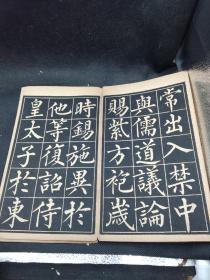 常出入禁中
與儒道議論
賜紫方袍歲
時錫施異於
他等復詔侍
皇太子於東